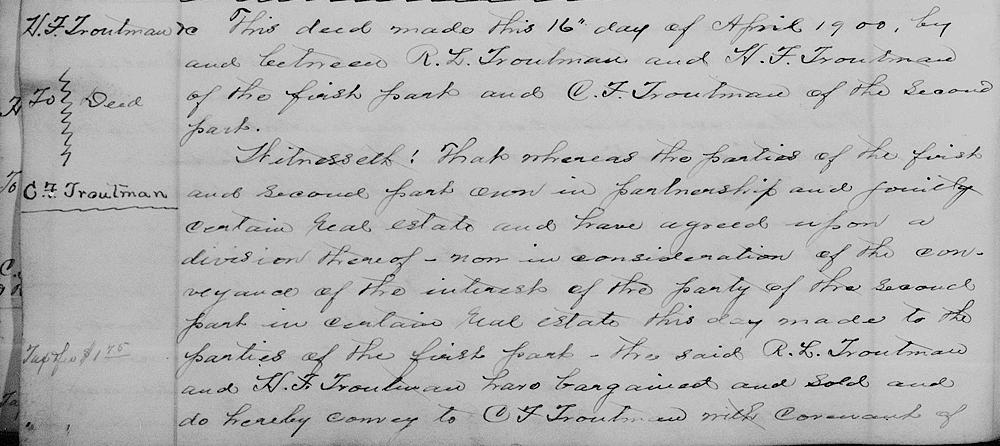 H.F. Troutman &c
To Deed
C.F. Troutman
Tax pd $1 75
This deed made this 16" day of April 1900, by
and between R.L. Troutman and H.F. Troutman
of the first part and C.F. Troutman of the second
part.
Witnesseth! That whereas the parties of the first
and second part own in partnership and jointly
certain real estate and have agreed upon a
division thereof - now in consideration of the con-
veyance of the interest of the party of the second
part in certain real estate this day made to the
parties of the first part - the said R.L. Troutman
and H.F. Troutman have bargained and sold and
do hereby convey to C F Troutman with covenant of